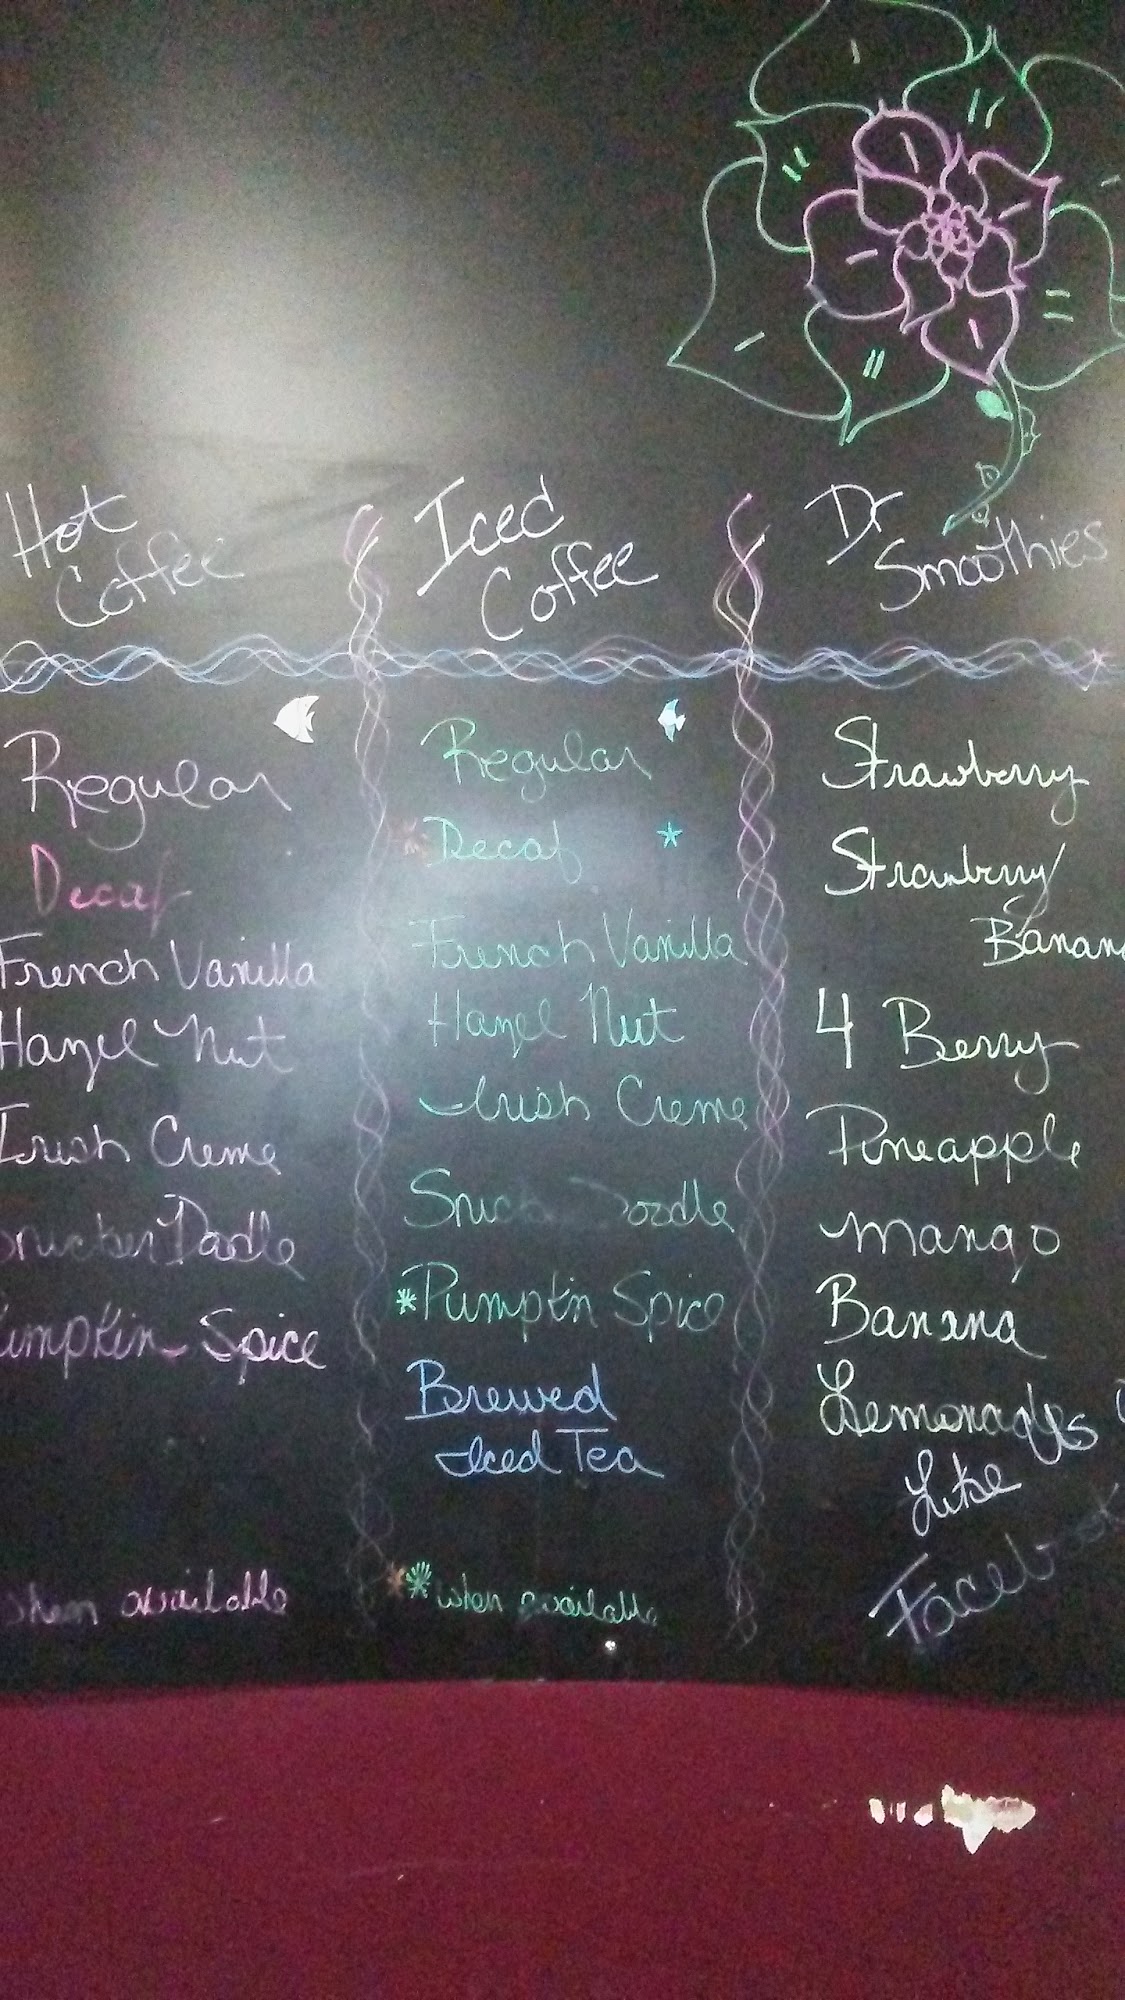 Hot
Coffee
Regular
Decaf
French Vanilla
Hazel Nut
Irish Creme
Snicker Doodle
Pumpkin Spice
when available
Iced
Coffee
Regular
* Decaf *
French Vanilla
Hazel Nut
Irish Creme
Doodle
*Pumpkin Spice
Brewed
Iced Tea
**when available
Dr
Smoothies
Strawberry
Strawberry
Banana
4 Berry
Pineapple
Mango
Banana
Lemonades
Like
Facebook